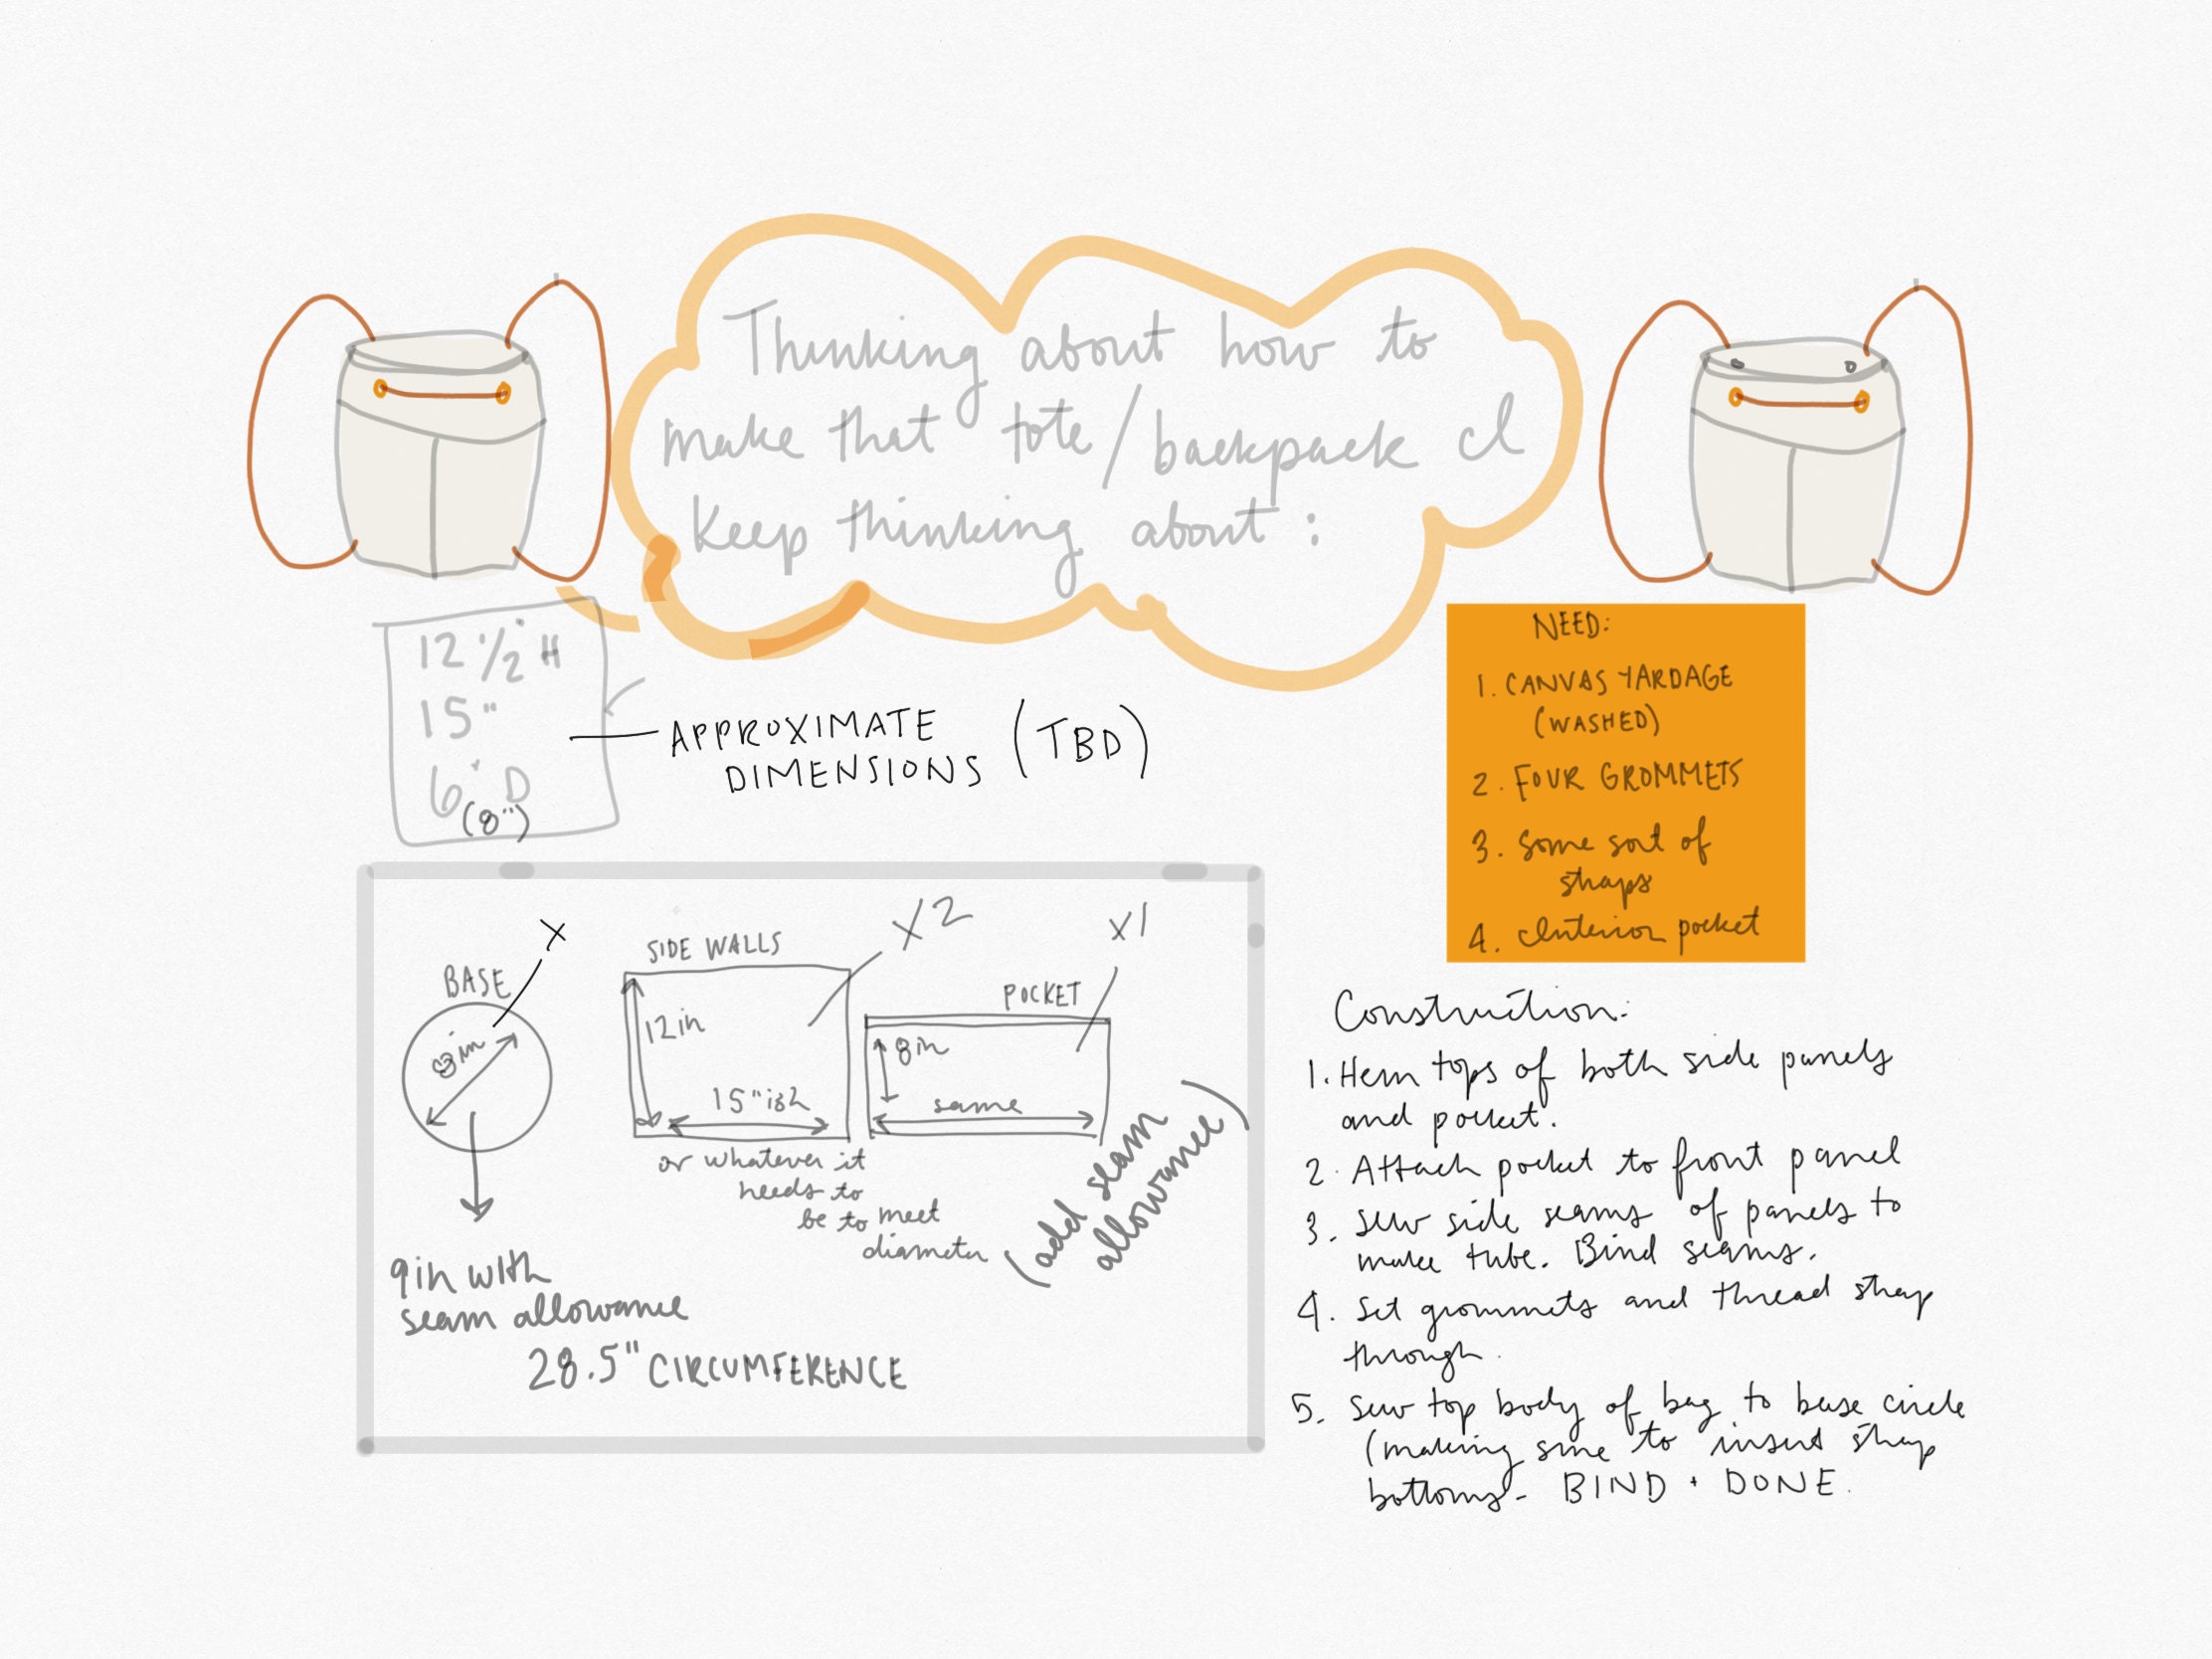 Thinking about how to
make that tote/backpack I
keep thinking about:
12 1/2" H
15"
6" D
(8")
APPROXIMATE
DIMENSIONS (TBD)
NEED:
1. CANVAS YARDAGE
(WASHED)
2. FOUR GROMMETS
3. Some sort of
straps
4. Interior pocket
BASE
X
8in
9in with
seam allowance
28.5" CIRCUMFERENCE
SIDE WALLS
X2
12in
15"ish
or whatever it
needs to
be to meet
diameter
POCKET
X1
8in
same
(add seam
allowance)
Construction:
1. Hem tops of both side panels
and pocket.
2. Attach pocket to front panel
3. Sew side seams of panels to
make tube. Bind seams.
4. Set grommets and thread strap
through.
5. Sew top body of bag to base circle
(making sure to insert strap
bottoms - BIND + DONE.